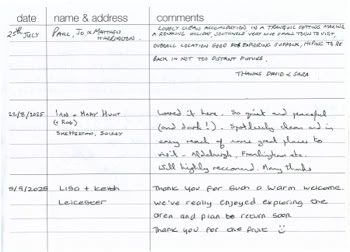 date name & address comments
25th July Paul, Jo & Matthew Harrington.
Lovely clean accomodation in a tranquil setting making
a relaxing holiday. Southwold very nice small town to visit.
Overall location good for exploring Suffolk, hoping to be
back in not too distant future.
Thanks David & Sara
22/8/2025 Ian + Mary Hunt
(+ Rob)
Shepperton, Surrey
Loved it here. So quiet and peaceful
(and dark!). Spotlessly clean and in
easy reach of some great places to
visit - Aldeburgh, Framlingham etc.
Will highly recommend. Many thanks
5/9/2025 Lisa + Keith
Leicester
Thank you for such a warm welcome.
We've really enjoyed exploring the
area and plan be return soon
Thank you for the fruit